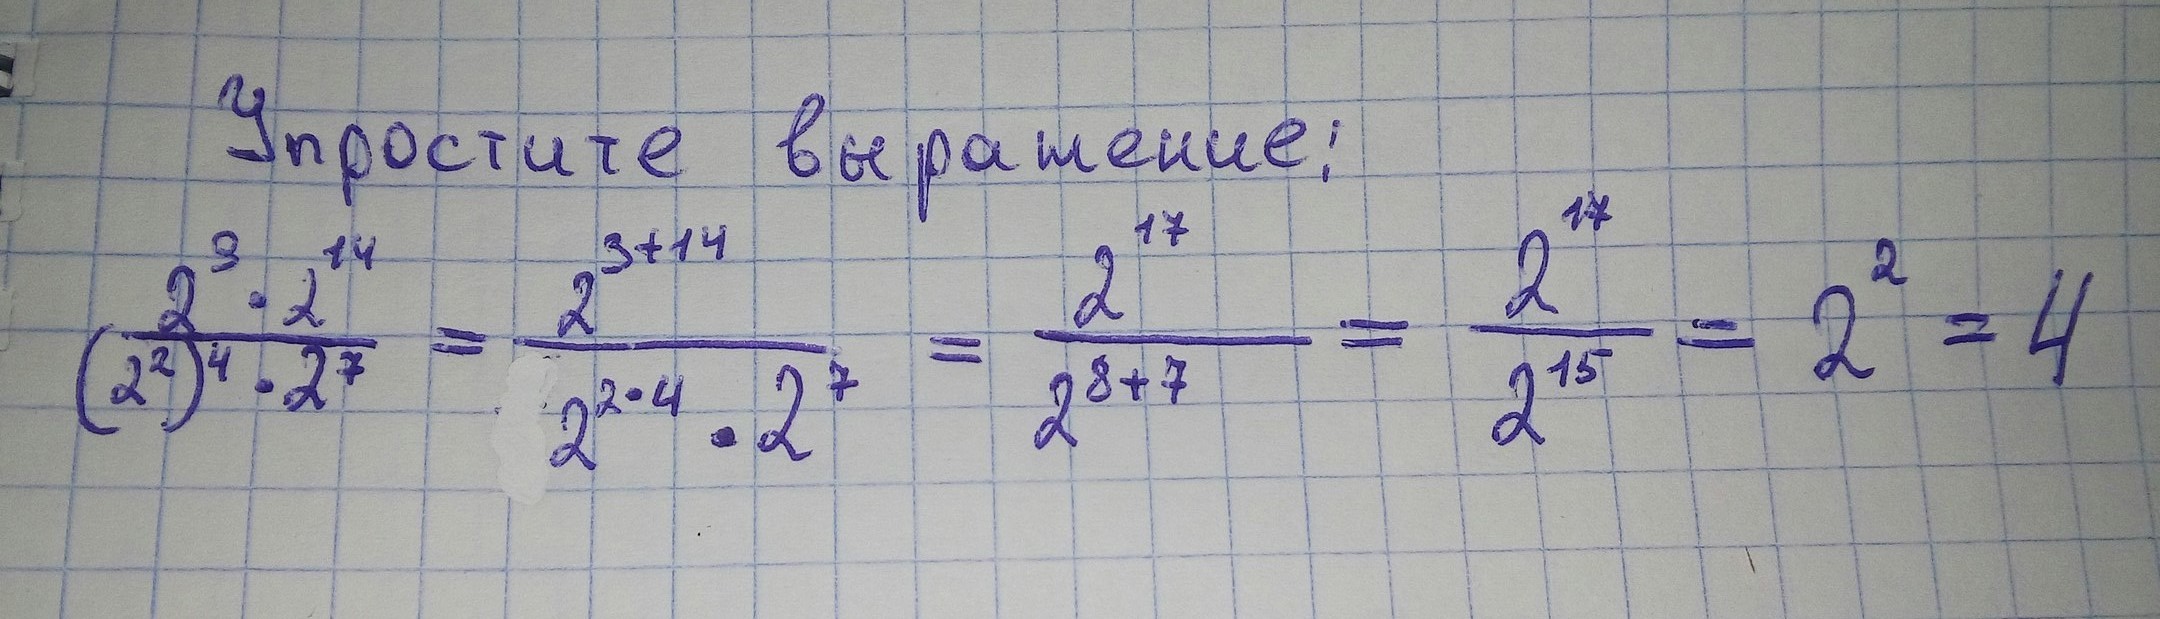 Упростите выражение:
(2³ · 2¹⁴)/((2²)⁴ · 2⁷) = 2³⁺¹⁴/(2²·⁴ · 2⁷) = 2¹⁷/2⁸⁺⁷ = 2¹⁷/2¹⁵ = 2² = 4